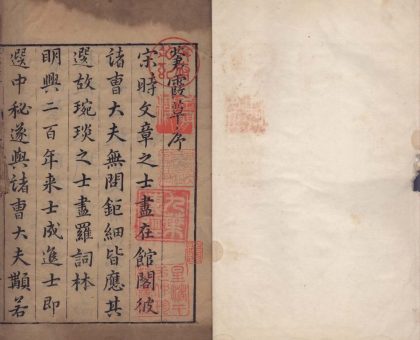 蒼霞草序
宋時文章之士盡在館閣彼
諸曹大夫無關鉅細皆應其
選故琬琰之士盡羅詞林
明興二百年來士成進士即
選中秘遂與諸曹大夫顓若